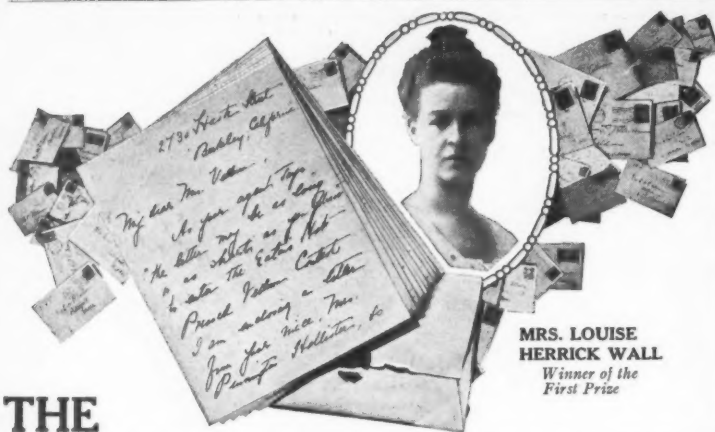 2730 Street
Berkeley, California
My dear Mr. Vellum:
As your agent says,
"the letter may be as long
or as short as you please"
to enter The Eaton's Hot-
Pressed Vellum Contest
I am enclosing a letter
from your niece, Mrs.
Pennington Hollister, to
MRS. LOUISE
HERRICK WALL
Winner of the
First Prize
THE